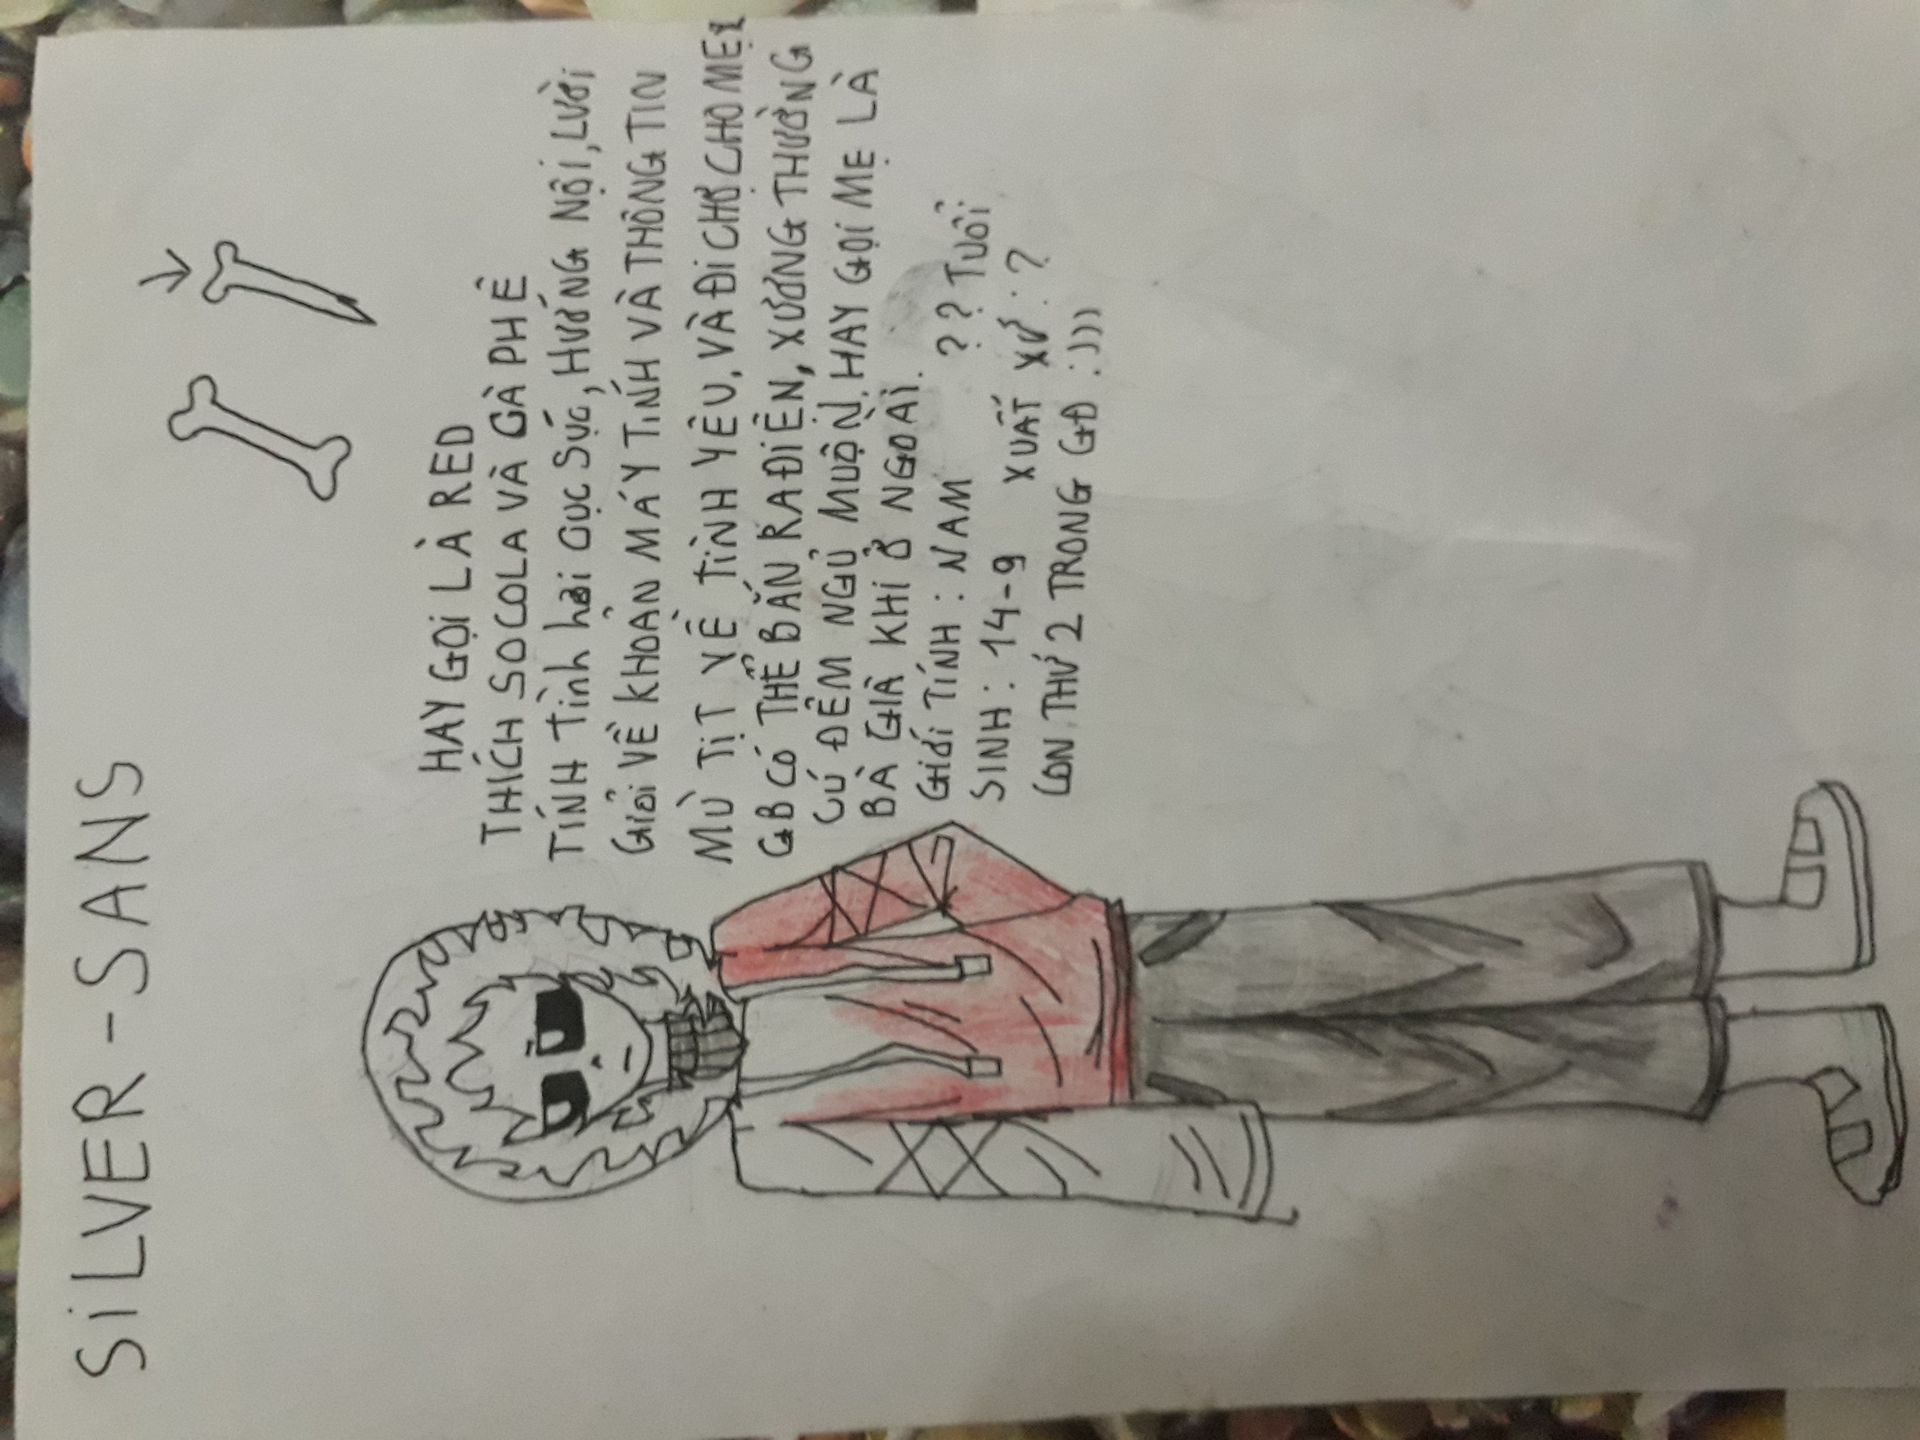 SiLVER-SANS
HAY GỌI LÀ RED
THÍCH SOCOLA VÀ CÀ PHÊ
TÍNH TÌNH hơi CỤC SÚC, HƯỚNG NỘI, LƯỜI
GIỎI VỀ KHOẢN MÁY TÍNH VÀ THÔNG TIN
MÙ TỊT VỀ TÌNH YÊU, VÀ ĐI CHỢ CHO MẸ
GB CÓ THỂ BẮN RA ĐIỆN, XƯƠNG THƯỜNG
CÚ ĐÊM NGỦ MUỘN, HAY GỌI MẸ LÀ
BÀ GIÀ KHI Ở NGOÀI.
GIỚI TÍNH : NAM ?? TUỔI
SINH : 14-9 XUẤT XỨ : ?
CON THỨ 2 TRONG GĐ :)))